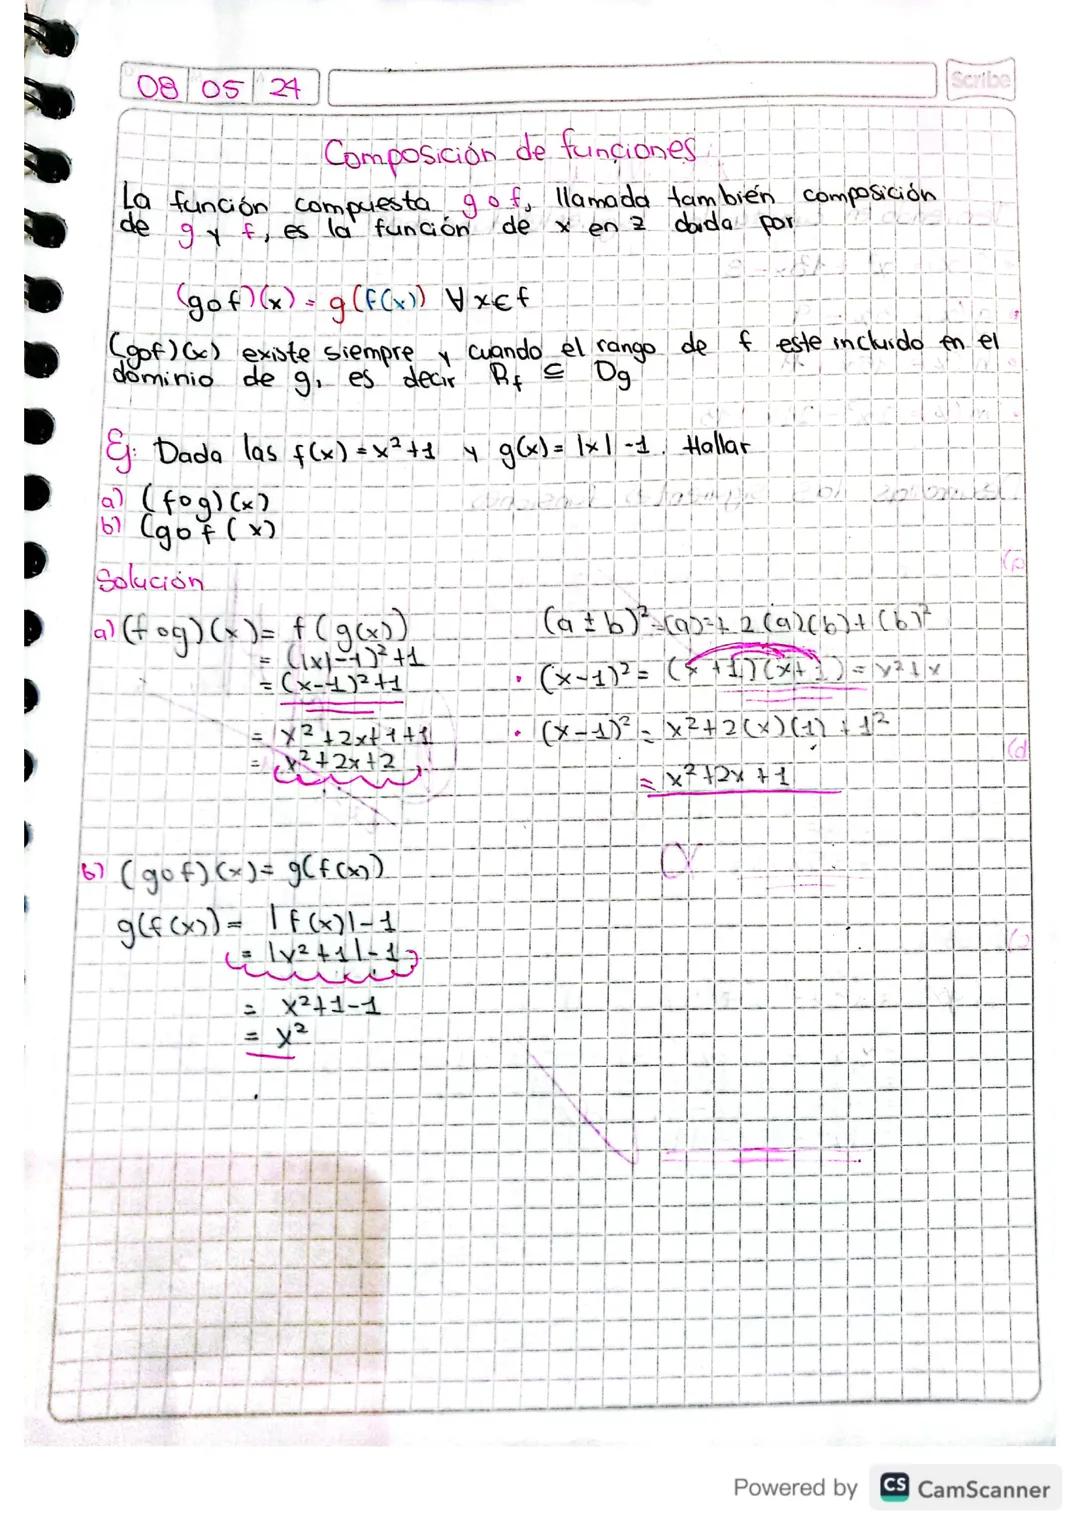 08 05 24
Scribe
Composición de funciones
La función compuesta g o f, llamada también composición
de g y f, es la función de x en z dada por
(gof)(x) = g(f(x)) ∀ x∈f
(gof)(x) existe siempre y cuando el rango de f este incluido en el
dominio de g, es decir Rf ⊆ Dg
Ej: Dada las f(x) = x²+1 y g(x) = |x| -1. Hallar
a) (fog)(x)
b) (gof(x)
Solución
a) (fog)(x) = f(g(x))
= (|x|-1)²+1
= (x-1)²+1
= x²+2x+1+1
= x²+2x+2
(a±b)² = (a)²± 2(a)(b)+(b)²
• (x-1)² = (x+1)(x+1) = x²+x
• (x-1)² = x²+2(x)(1)+1²
= x²+2x+1
b) (gof)(x) = g(f(x))
g(f(x)) = |f(x)|-1
= |x²+1|-1
= x²+1-1
= x²
Powered by CS CamScanner